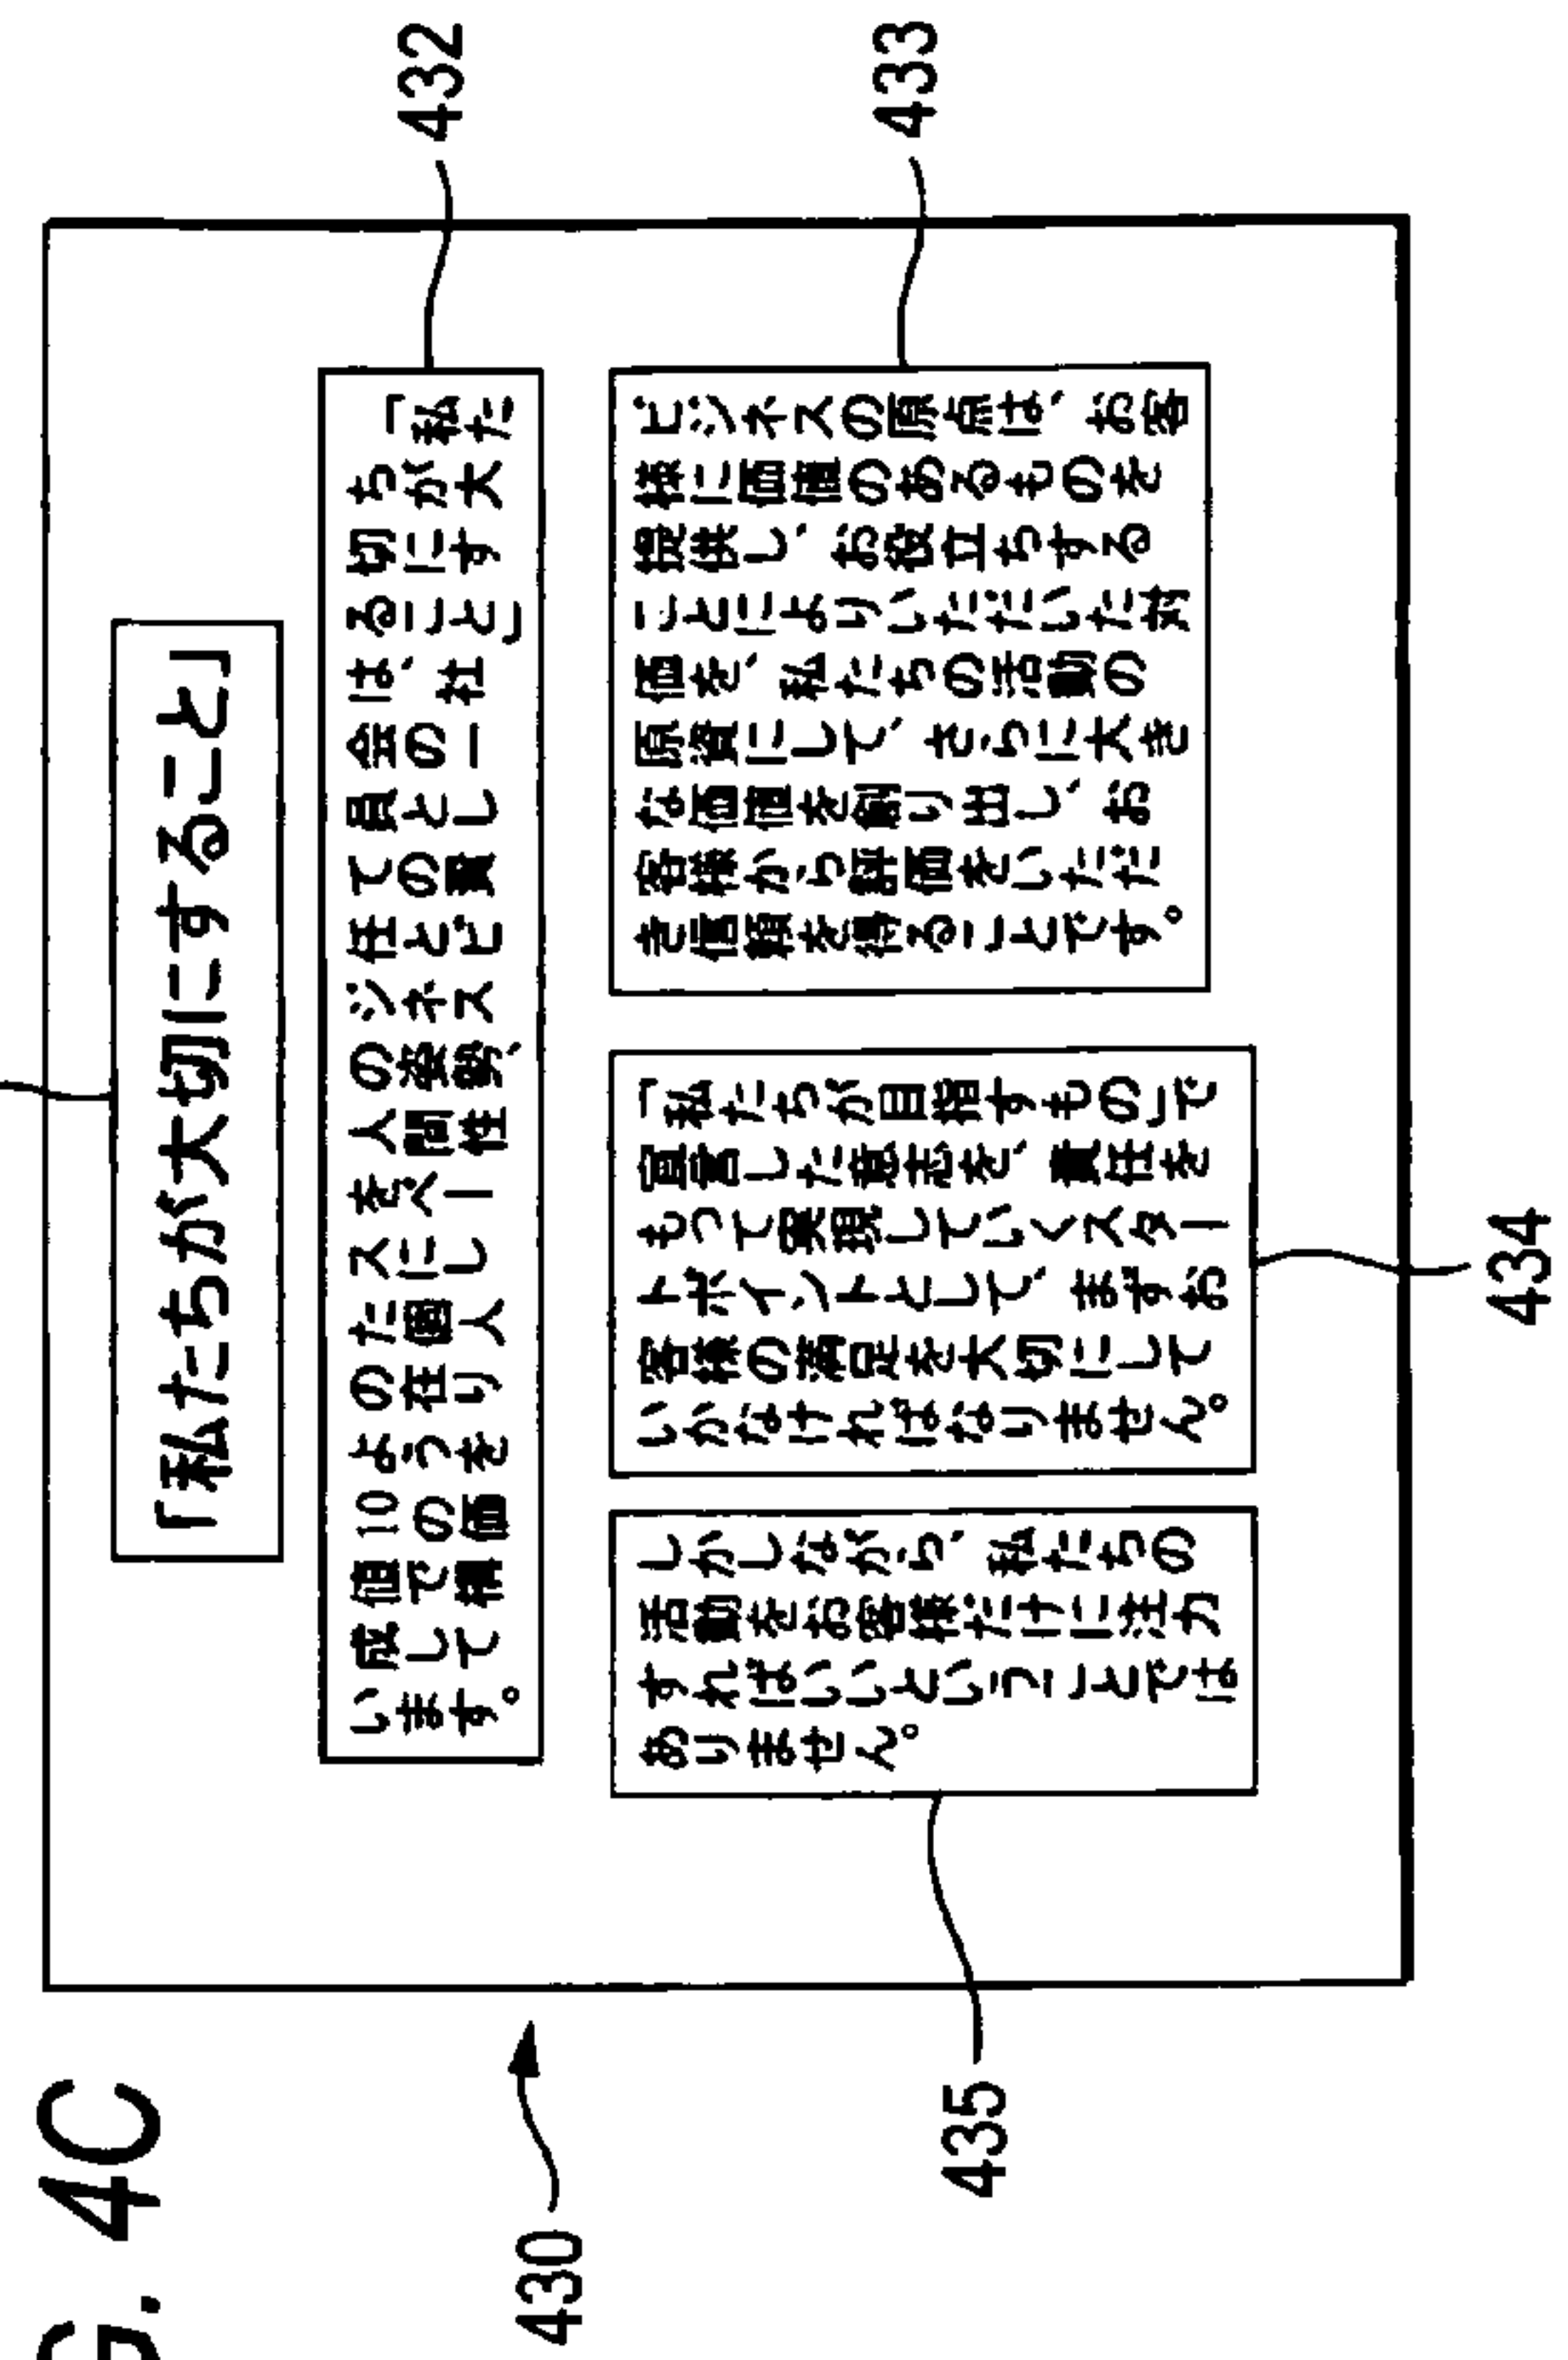 G. 4C
430
「私たちが大切にすること」
432
「私た
ちが大
切にす
ること」
は、社
会の一
員とし
ての責
任とビ
ジネス
の姿勢、
人間性
をベー
スにし
た個人
の在り
ようを
10の価
値で構
成して
います。
433
ビジネスの原点は、お客
様に価値のあるものを
提供し、お役立ちする
ことによりいただいた対
価を、私たちの活動の
原資にして、さらに大き
な価値を創り出し、お
客様から評価をいただ
き信頼を得ることです。
「私たちが目指すもの」で
宣言した意志を、責任を
もって実現していくスター
トポイントとして、まずお
客様の満足を大切にして
いかなければなりません。
434
しかしながら、私たちの
活動をお客様だけに注力
すればいいということでは
ありません。
435